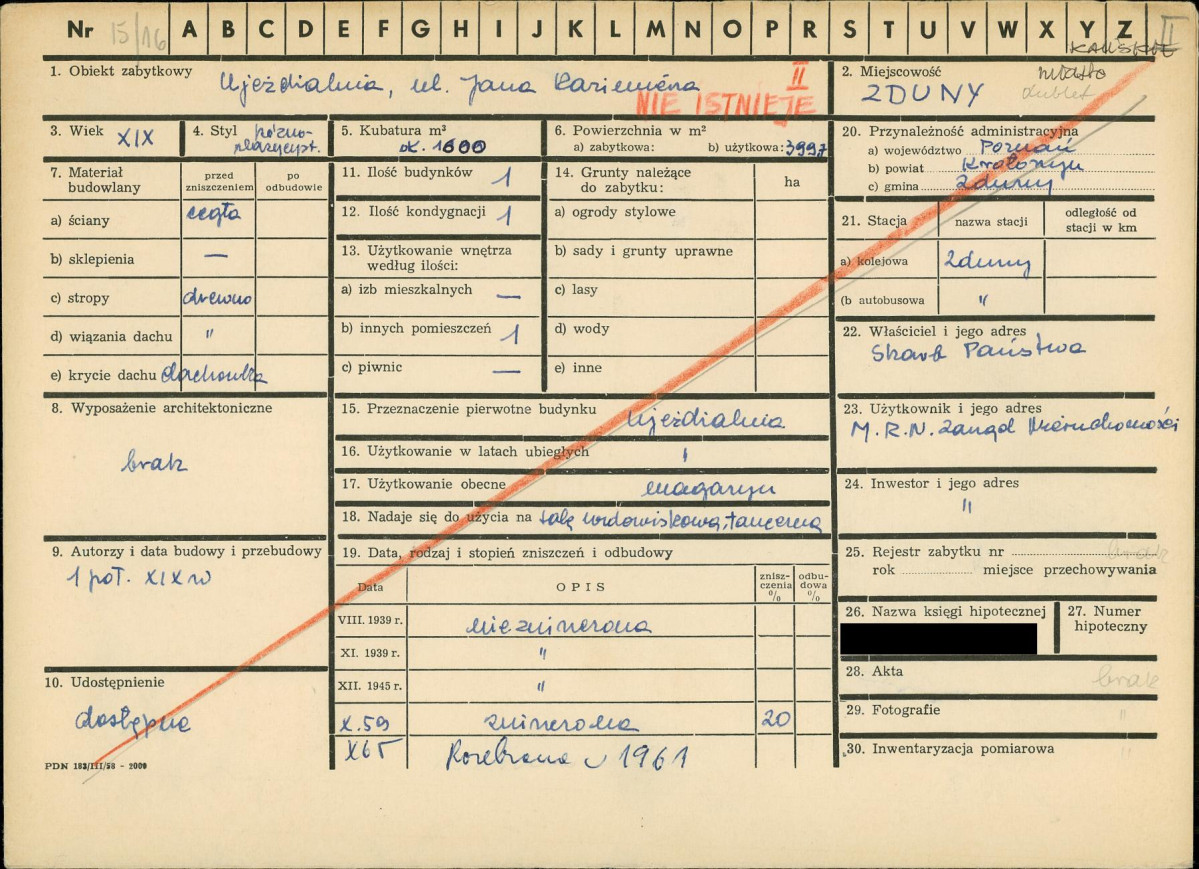 Nr 15/16 A B C D E F G H I J K L M N O P R S T U V W X Y Z II
KALISKIE
1. Obiekt zabytkowy Ujeżdialnia, ul. Jana Kazimierza II
NIE ISTNIEJE
2. Miejscowość miasto
ZDUNY
3. Wiek XIX
4. Styl późno-
klasycyst.
5. Kubatura m³
ok. 1600
6. Powierzchnia w m²
a) zabytkowa: b) użytkowa: 3997
7. Materiał budowlany
przed zniszczeniem
po odbudowie
a) ściany cegła
b) sklepienia —
c) stropy drewno
d) wiązania dachu "
e) krycie dachu dachówka
8. Wyposażenie architektoniczne
brak
9. Autorzy i data budowy i przebudowy
1 poł. XIX w
10. Udostępnienie
dostępne
PDN 182/III/58 - 2000
11. Ilość budynków 1
12. Ilość kondygnacji 1
13. Użytkowanie wnętrza
według ilości:
a) izb mieszkalnych —
b) innych pomieszczeń 1
c) piwnic —
14. Grunty należące
do zabytku: ha
a) ogrody stylowe
b) sady i grunty uprawne
c) lasy
d) wody
e) inne
15. Przeznaczenie pierwotne budynku Ujeżdialnia
16. Użytkowanie w latach ubiegłych "
17. Użytkowanie obecne magazyn
18. Nadaje się do użycia na salę widowiskową, taneczną
19. Data, rodzaj i stopień zniszczeń i odbudowy
Data OPIS znisz-czenia % odbu-dowa %
VIII. 1939 r. niezniszczona
XI. 1939 r. "
XII. 1945 r. "
X.59 zniszczona 20
X 65 Rozebrana w 1961
20. Przynależność administracyjna
a) województwo Poznań
b) powiat Krotoszyn
c) gmina Zduny
21. Stacja nazwa stacji odległość od stacji w km
a) kolejowa Zduny
(b autobusowa "
22. Właściciel i jego adres
Skarb Państwa
23. Użytkownik i jego adres
M.R.N. Zarząd Nieruchomości
24. Inwestor i jego adres
"
25. Rejestr zabytku nr brak
rok miejsce przechowywania
26. Nazwa księgi hipotecznej
27. Numer
hipoteczny
28. Akta brak
29. Fotografie "
30. Inwentaryzacja pomiarowa "